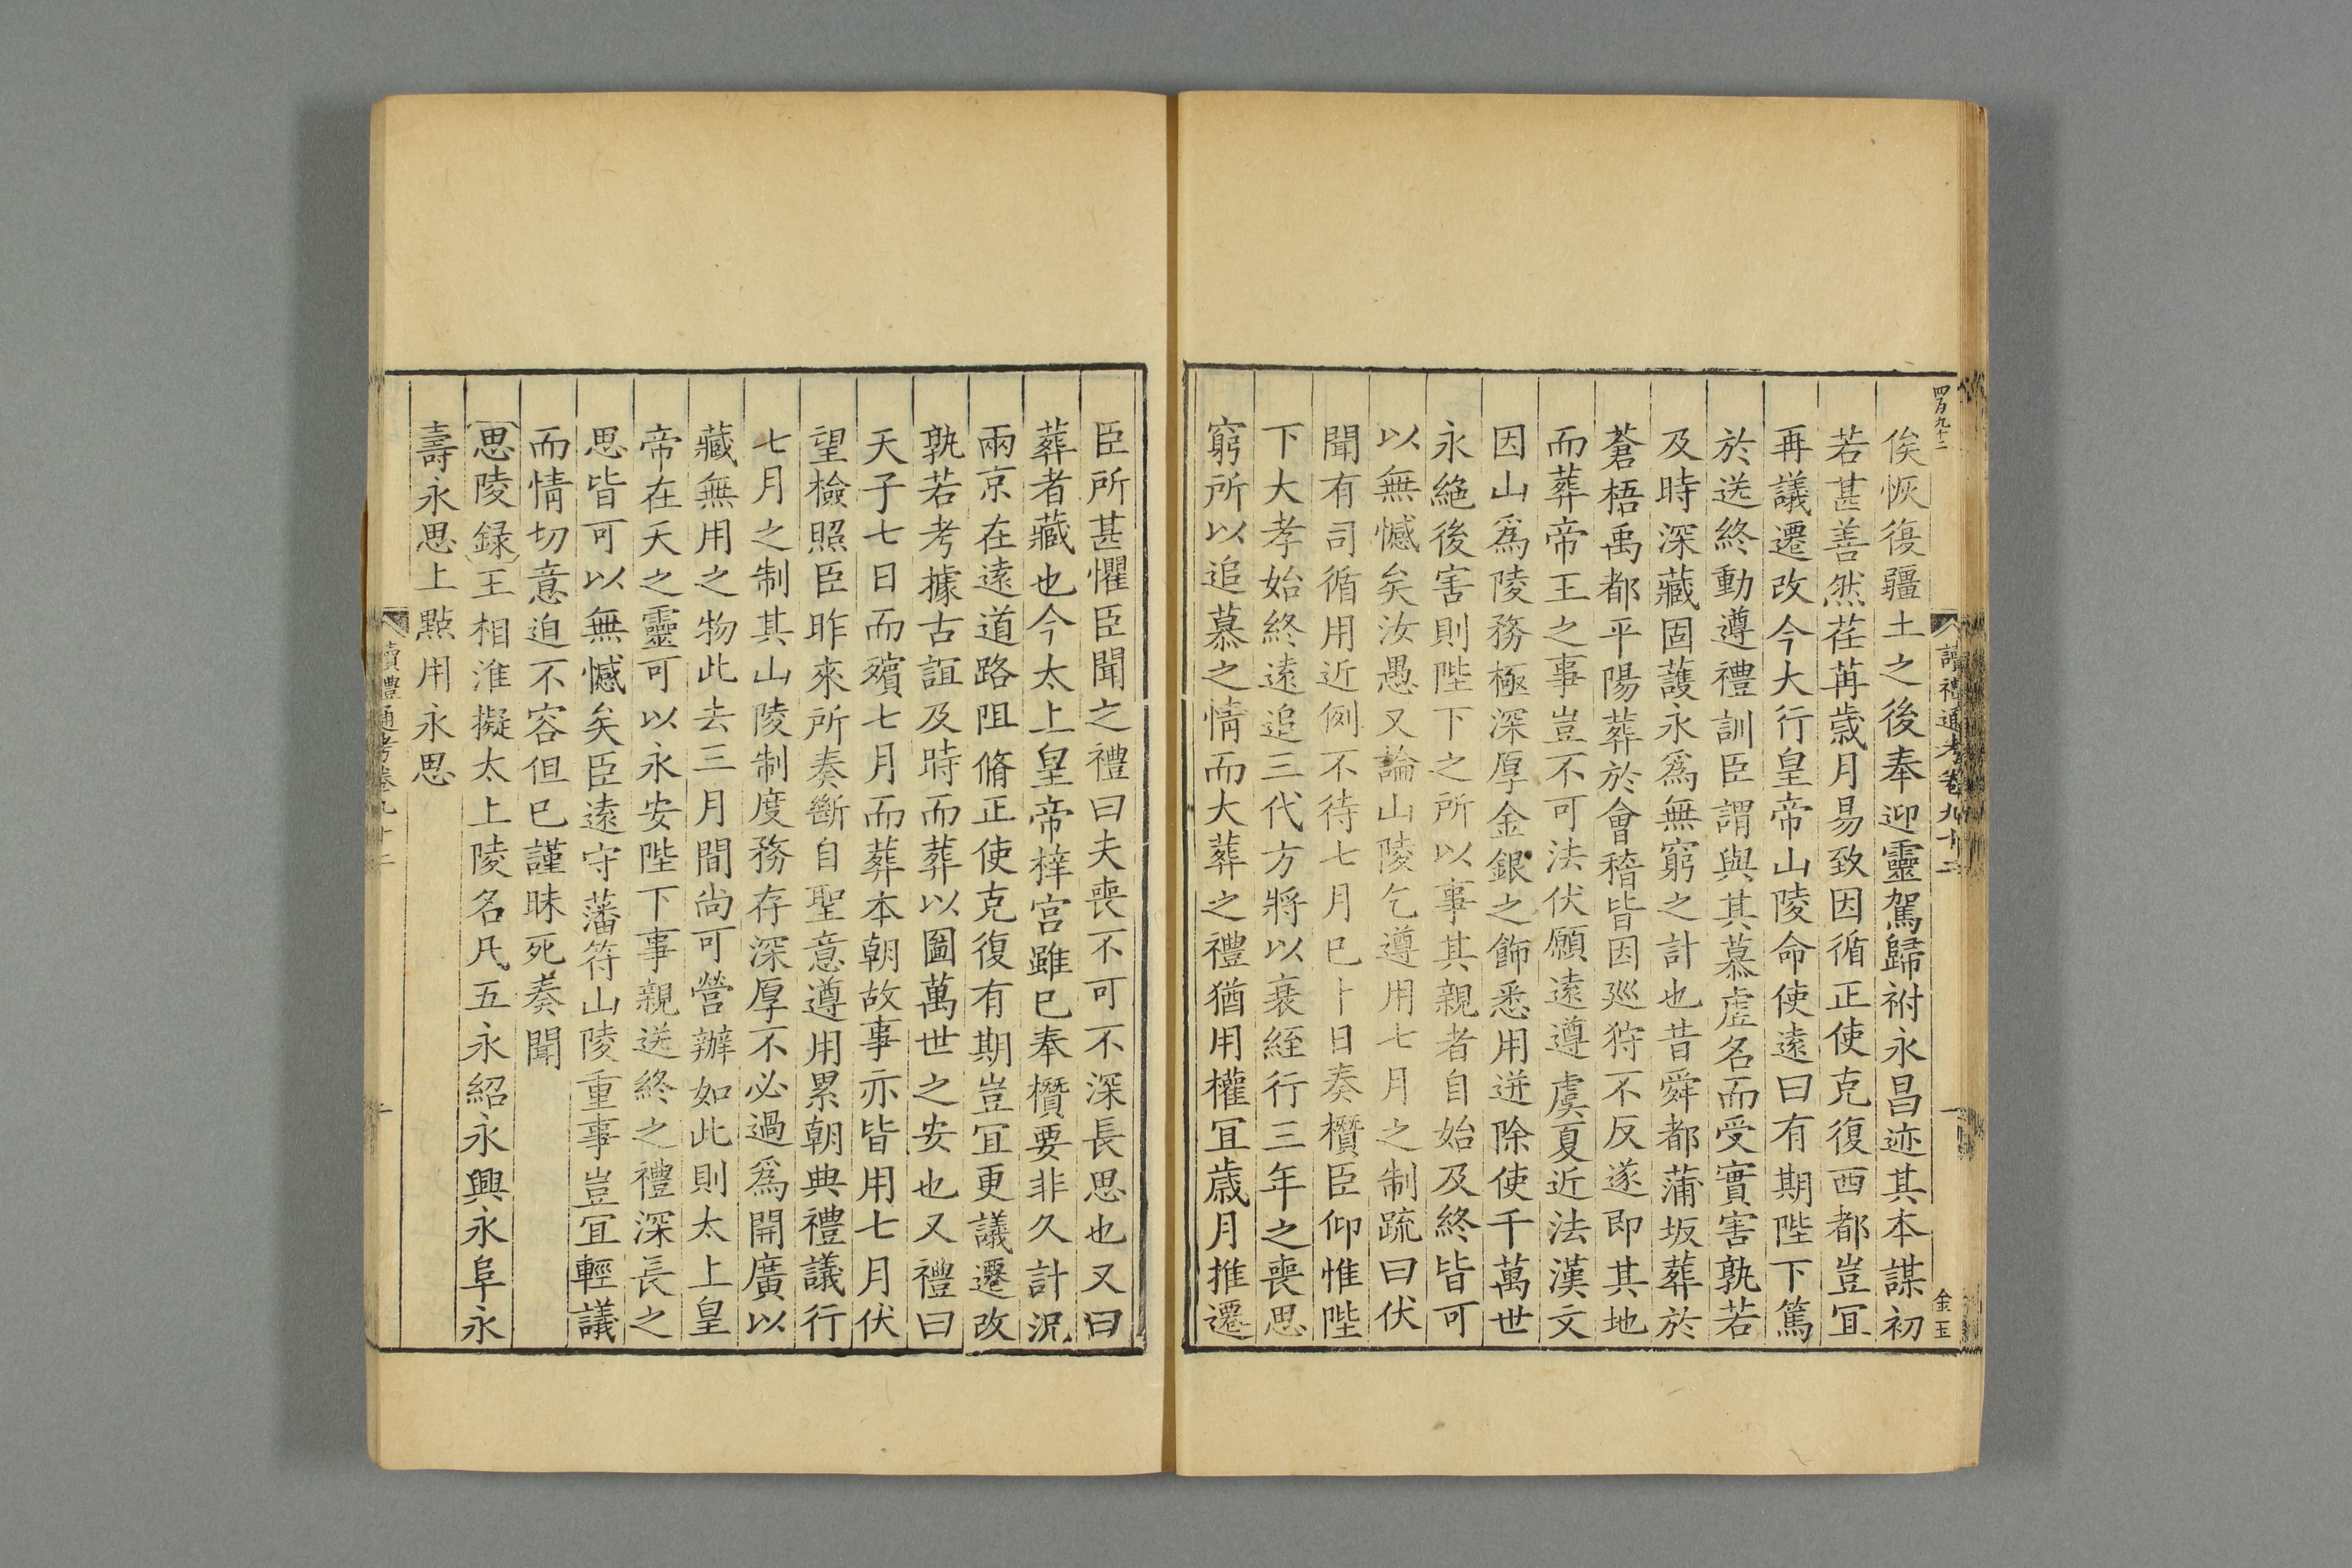 四百九十二
讀禮通考卷九十二
金玉
俟恢復疆土之後奉迎靈駕歸祔永昌迹其本謀初
若甚善然荏苒歲月易致因循正使克復西都豈冝
再議遷改今大行皇帝山陵命使遠曰有期陛下篤
於送終動遵禮訓臣謂與其慕虛名而受實害孰若
及時深藏固護永爲無窮之計也昔舜都蒲坂葬於
蒼梧禹都平陽葬於會稽皆因廵狩不反遂即其地
而葬帝王之事豈不可法伏願遠遵虞夏近法漢文
因山爲陵務極深厚金銀之飾悉用迸除使千萬世
永絶後害則陛下之所以事其親者自始及終皆可
以無憾矣汝愚又論山陵乞遵用七月之制疏曰伏
聞有司循用近例不待七月已卜日奏欑臣仰惟陛
下大孝始終遠追三代方將以衰絰行三年之喪思
窮所以追慕之情而大葬之禮猶用權冝歲月推遷
臣所甚懼臣聞之禮曰夫喪不可不深長思也又曰
葬者藏也今太上皇帝梓宫雖已奉欑要非久計況
兩京在遠道路阻脩正使克復有期豈冝更議遷改
孰若考據古誼及時而葬以圖萬世之安也又禮曰
天子七日而殯七月而葬本朝故事亦皆用七月伏
望檢照臣昨來所奏斷自聖意遵用累朝典禮議行
七月之制其山陵制度務存深厚不必過爲開廣以
藏無用之物此去三月間尚可營辦如此則太上皇
帝在天之靈可以永安陛下事親送終之禮深長之
思皆可以無憾矣臣遠守藩符山陵重事豈冝輕議
而情切意迫不容但已謹昧死奏聞
思陵録王相淮擬太上陵名凡五永紹永興永阜永
壽永思上㸃用永思
讀禮通考卷九十二